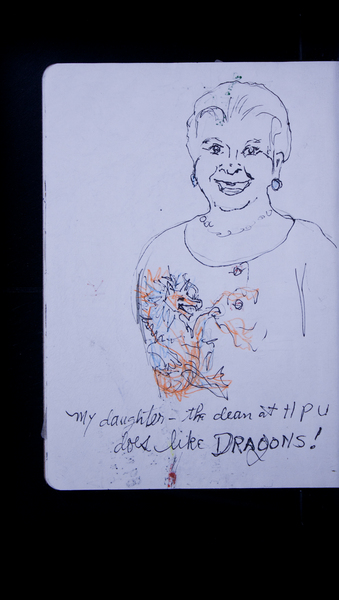 My daughter - the dean at HPU
does like DRAGONS!